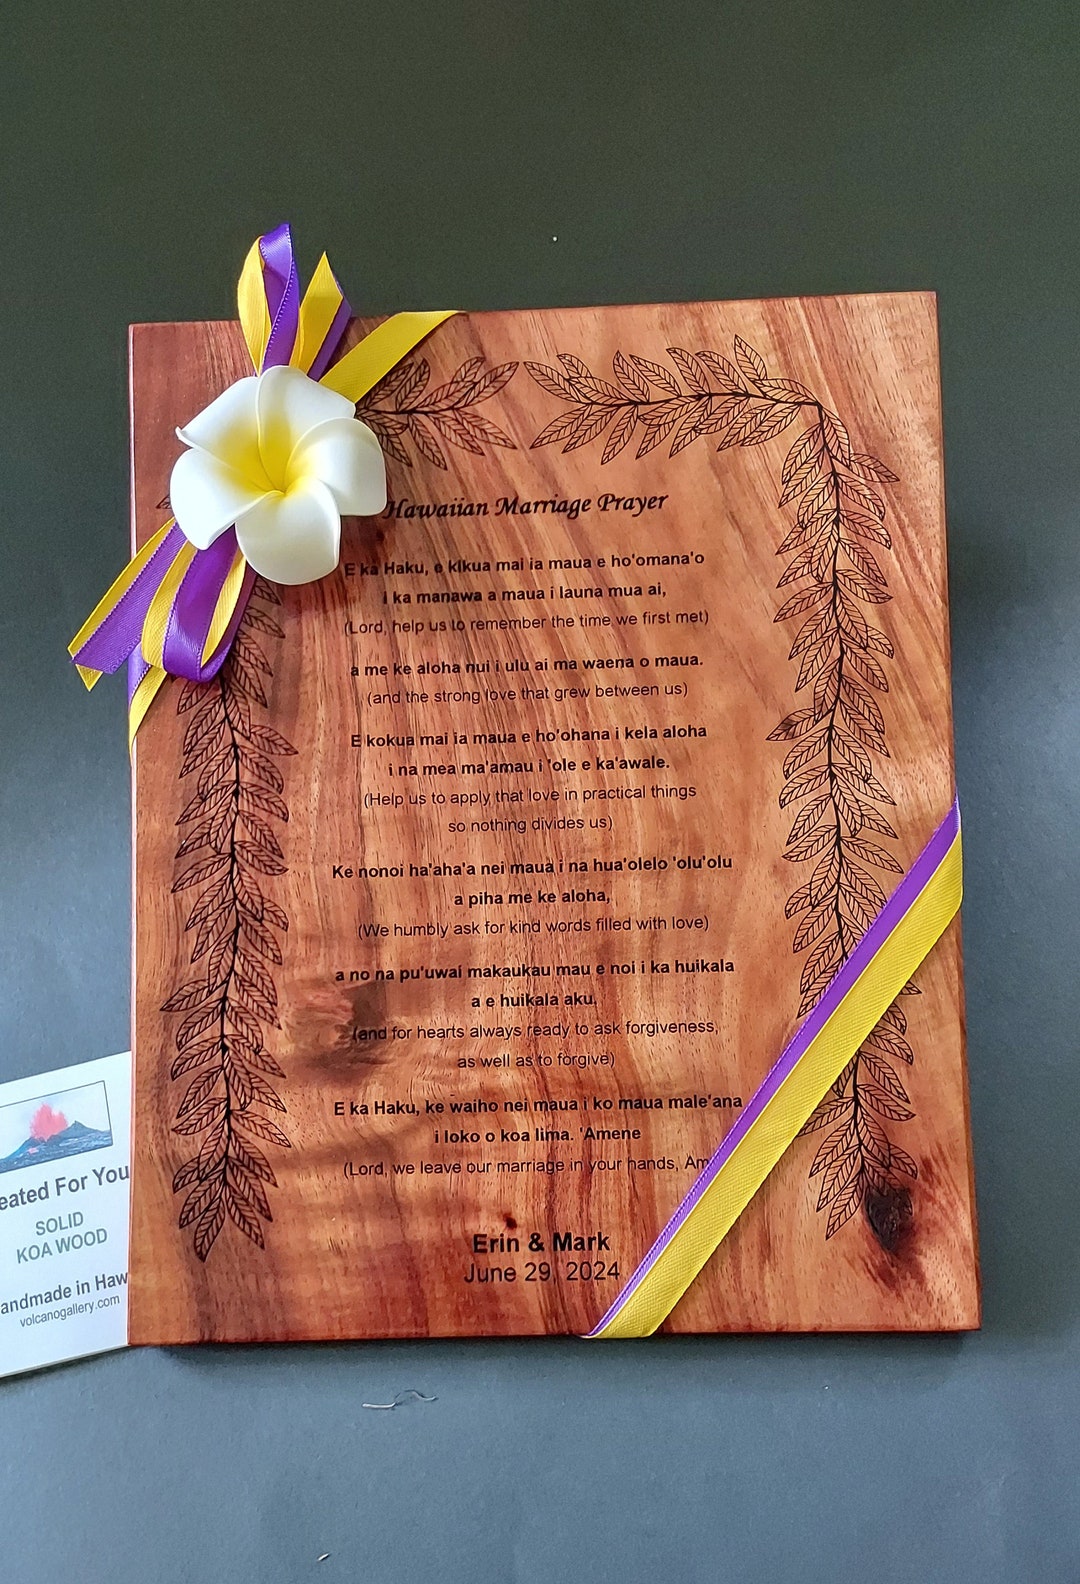 Hawaiian Marriage Prayer
E ka Haku, e kikua mai ia maua e ho'omana'o
i ka manawa a maua i launa mua ai,
(Lord, help us to remember the time we first met)
a me ke aloha nui i ulu ai ma waena o maua.
(and the strong love that grew between us)
E kokua mai ia maua e ho'ohana i kela aloha
i na mea ma'amau i 'ole e ka'awale.
(Help us to apply that love in practical things
so nothing divides us)
Ke nonoi ha'aha'a nei maua i na hua'olelo 'olu'olu
a piha me ke aloha,
(We humbly ask for kind words filled with love)
a no na pu'uwai makaukau mau e noi i ka huikala
a e huikala aku.
(and for hearts always ready to ask forgiveness,
as well as to forgive)
E ka Haku, ke waiho nei maua i ko maua male'ana
i loko o koa lima. 'Amene
(Lord, we leave our marriage in your hands, Am
Erin & Mark
June 29, 2024
eated For You
SOLID
KOA WOOD
andmade in Haw
volcanogallery.com